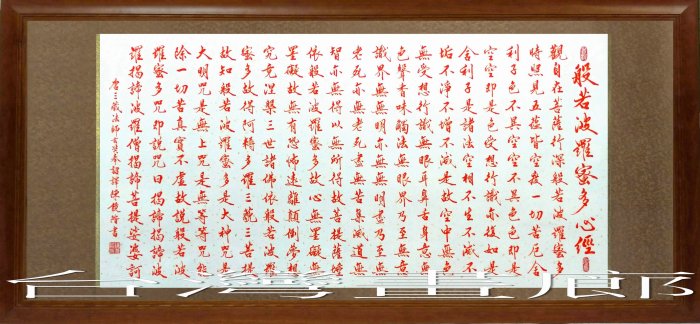 般若波羅蜜多心經
觀自在菩薩行深般若波羅蜜多
時照見五蘊皆空度一切苦厄舍
利子色不異空空不異色色即是
空空即是色受想行識亦復如是
舍利子是諸法空相不生不滅不
垢不淨不增不減是故空中無色
無受想行識無眼耳鼻舌身意無
色聲香味觸法無眼界乃至無意
識界無無明亦無無明盡乃至無
老死亦無老死盡無苦集滅道無
智亦無得以無所得故菩提薩埵
依般若波羅蜜多故心無罣礙無
罣礙故無有恐怖遠離顛倒夢想
究竟涅槃三世諸佛依般若波羅
蜜多故得阿耨多羅三藐三菩提
故知般若波羅蜜多是大神咒是
大明咒是無上咒是無等等咒能
除一切苦真實不虛故說般若波
羅蜜多咒即說咒曰揭諦揭諦波
羅揭諦波羅僧揭諦菩提娑婆訶
唐三藏法師玄奘奉詔譯陳書
台灣書廊